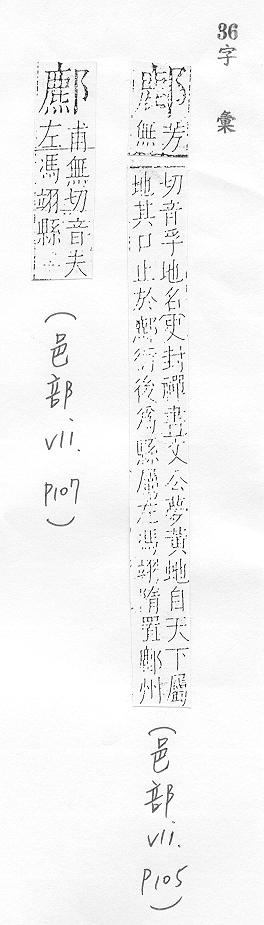 36 字彙
鄜
芳
無
切音孚地名史封禪書文公夢黃虵自天下屬
地其口止於鄜衍後為縣屬左馮翊隋置鄜州
(邑部 vii. p105)
甫無切音夫
左馮翊縣
(邑部 vii. p107)